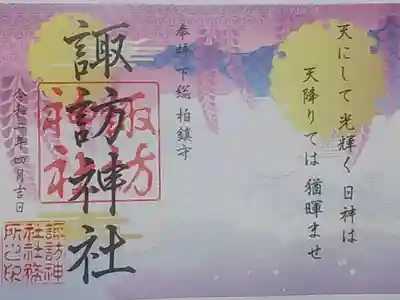 天にして光輝く日神は
天降りては猶暉ませ
奉拝 下総 柏鎮守
諏訪神社
諏訪神社
令和二年四月吉日
諏訪神社社務所之印